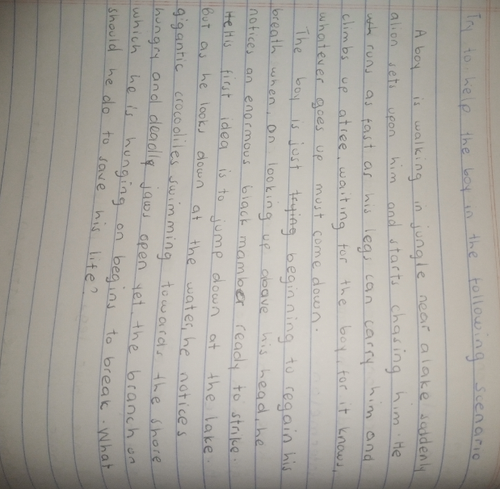 Try to help the boy in the following scenario
A boy is walking in jungle near a lake suddenly
a lion sets upon him and starts chasing him. He
runs as fast as his legs can carry him and
climbs up a tree, waiting for the boy, for it knows,
whatever goes up must come down.
The boy is just trying beginning to regain his
breath when, on looking up above his head he
notices an enormous black mamber ready to strike.
He His first idea is to jump down at the lake.
But as he looks down at the water, he notices
gigantic crocodiles swimming towards the shore
hungry and deadly jaws open yet, the branch on
which he is hunging on begins to break. What
should he do to save his life?